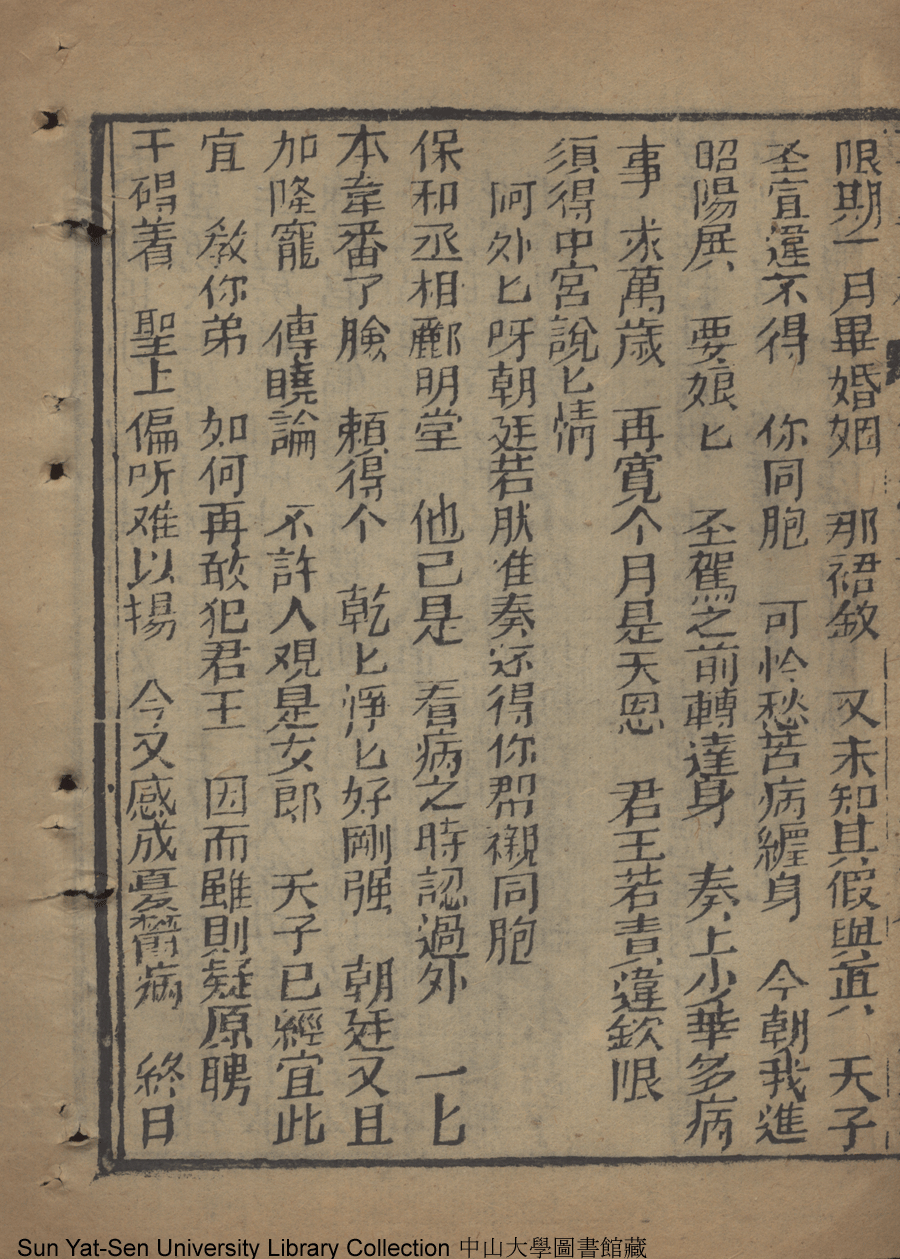 限期一月畢婚姻　那裙釵　又未知其假與真　天子
圣宜違不得　你同胞　可怜愁苦病纏身　今朝我進
昭陽展　要娘匕　圣駕之前轉達身　奏上少華多病
事　求萬歲　再寬个月是天恩　君王若責違欽限
須得中宮說匕情
阿外匕呀朝廷若肰准奏还得你帮襯同胞
保和丞相酈明堂　他已是　看病之時認過外　一匕
本章番了臉　賴得个　乾匕淨匕好剛强　朝廷又且
加隆寵　傳曉論　不許人观是女郎　天子已經宜此
宜　敎你弟　如何再敢犯君王　因而雖則疑原聘
干碍着　聖上偏听难以揚　今文感成憂欝病　終日
Sun Yat-Sen University Library Collection 中山大學圖書館藏